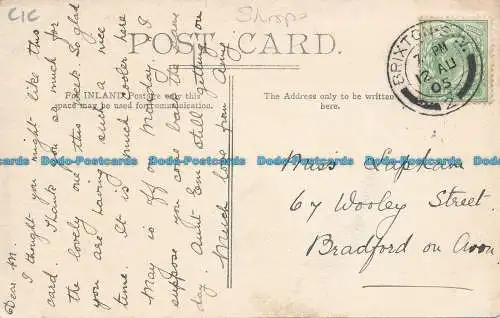 C1C
Shrops
POST CARD.
For INLAND Postage only this
space may be used for communication.
The Address only to be written
here.
BRIXTON. S.W.
7 PM
12 AU
2
Dear M.
I thought you might like this
card. Thank you so much for
the lovely one this week. So glad
you are having such a nice
time. It is much cooler here
May is off on Monday. I
suppose you come back the same
day. Aunt Em still getting on
Much love from Amy.
Miss Lapham
67 Wooley Street.
Bradford on Avon.
Dodo-Postcards Dodo-Postcards Dodo-Postcards Dodo-Postcards Dodo-Postcards Dodo-Postcards